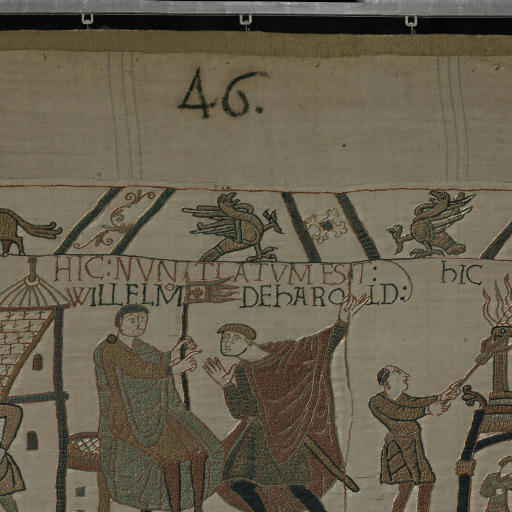 46.
HIC: NVNTIATVM EST:
WILLELMO DE hAROLD:
hIC